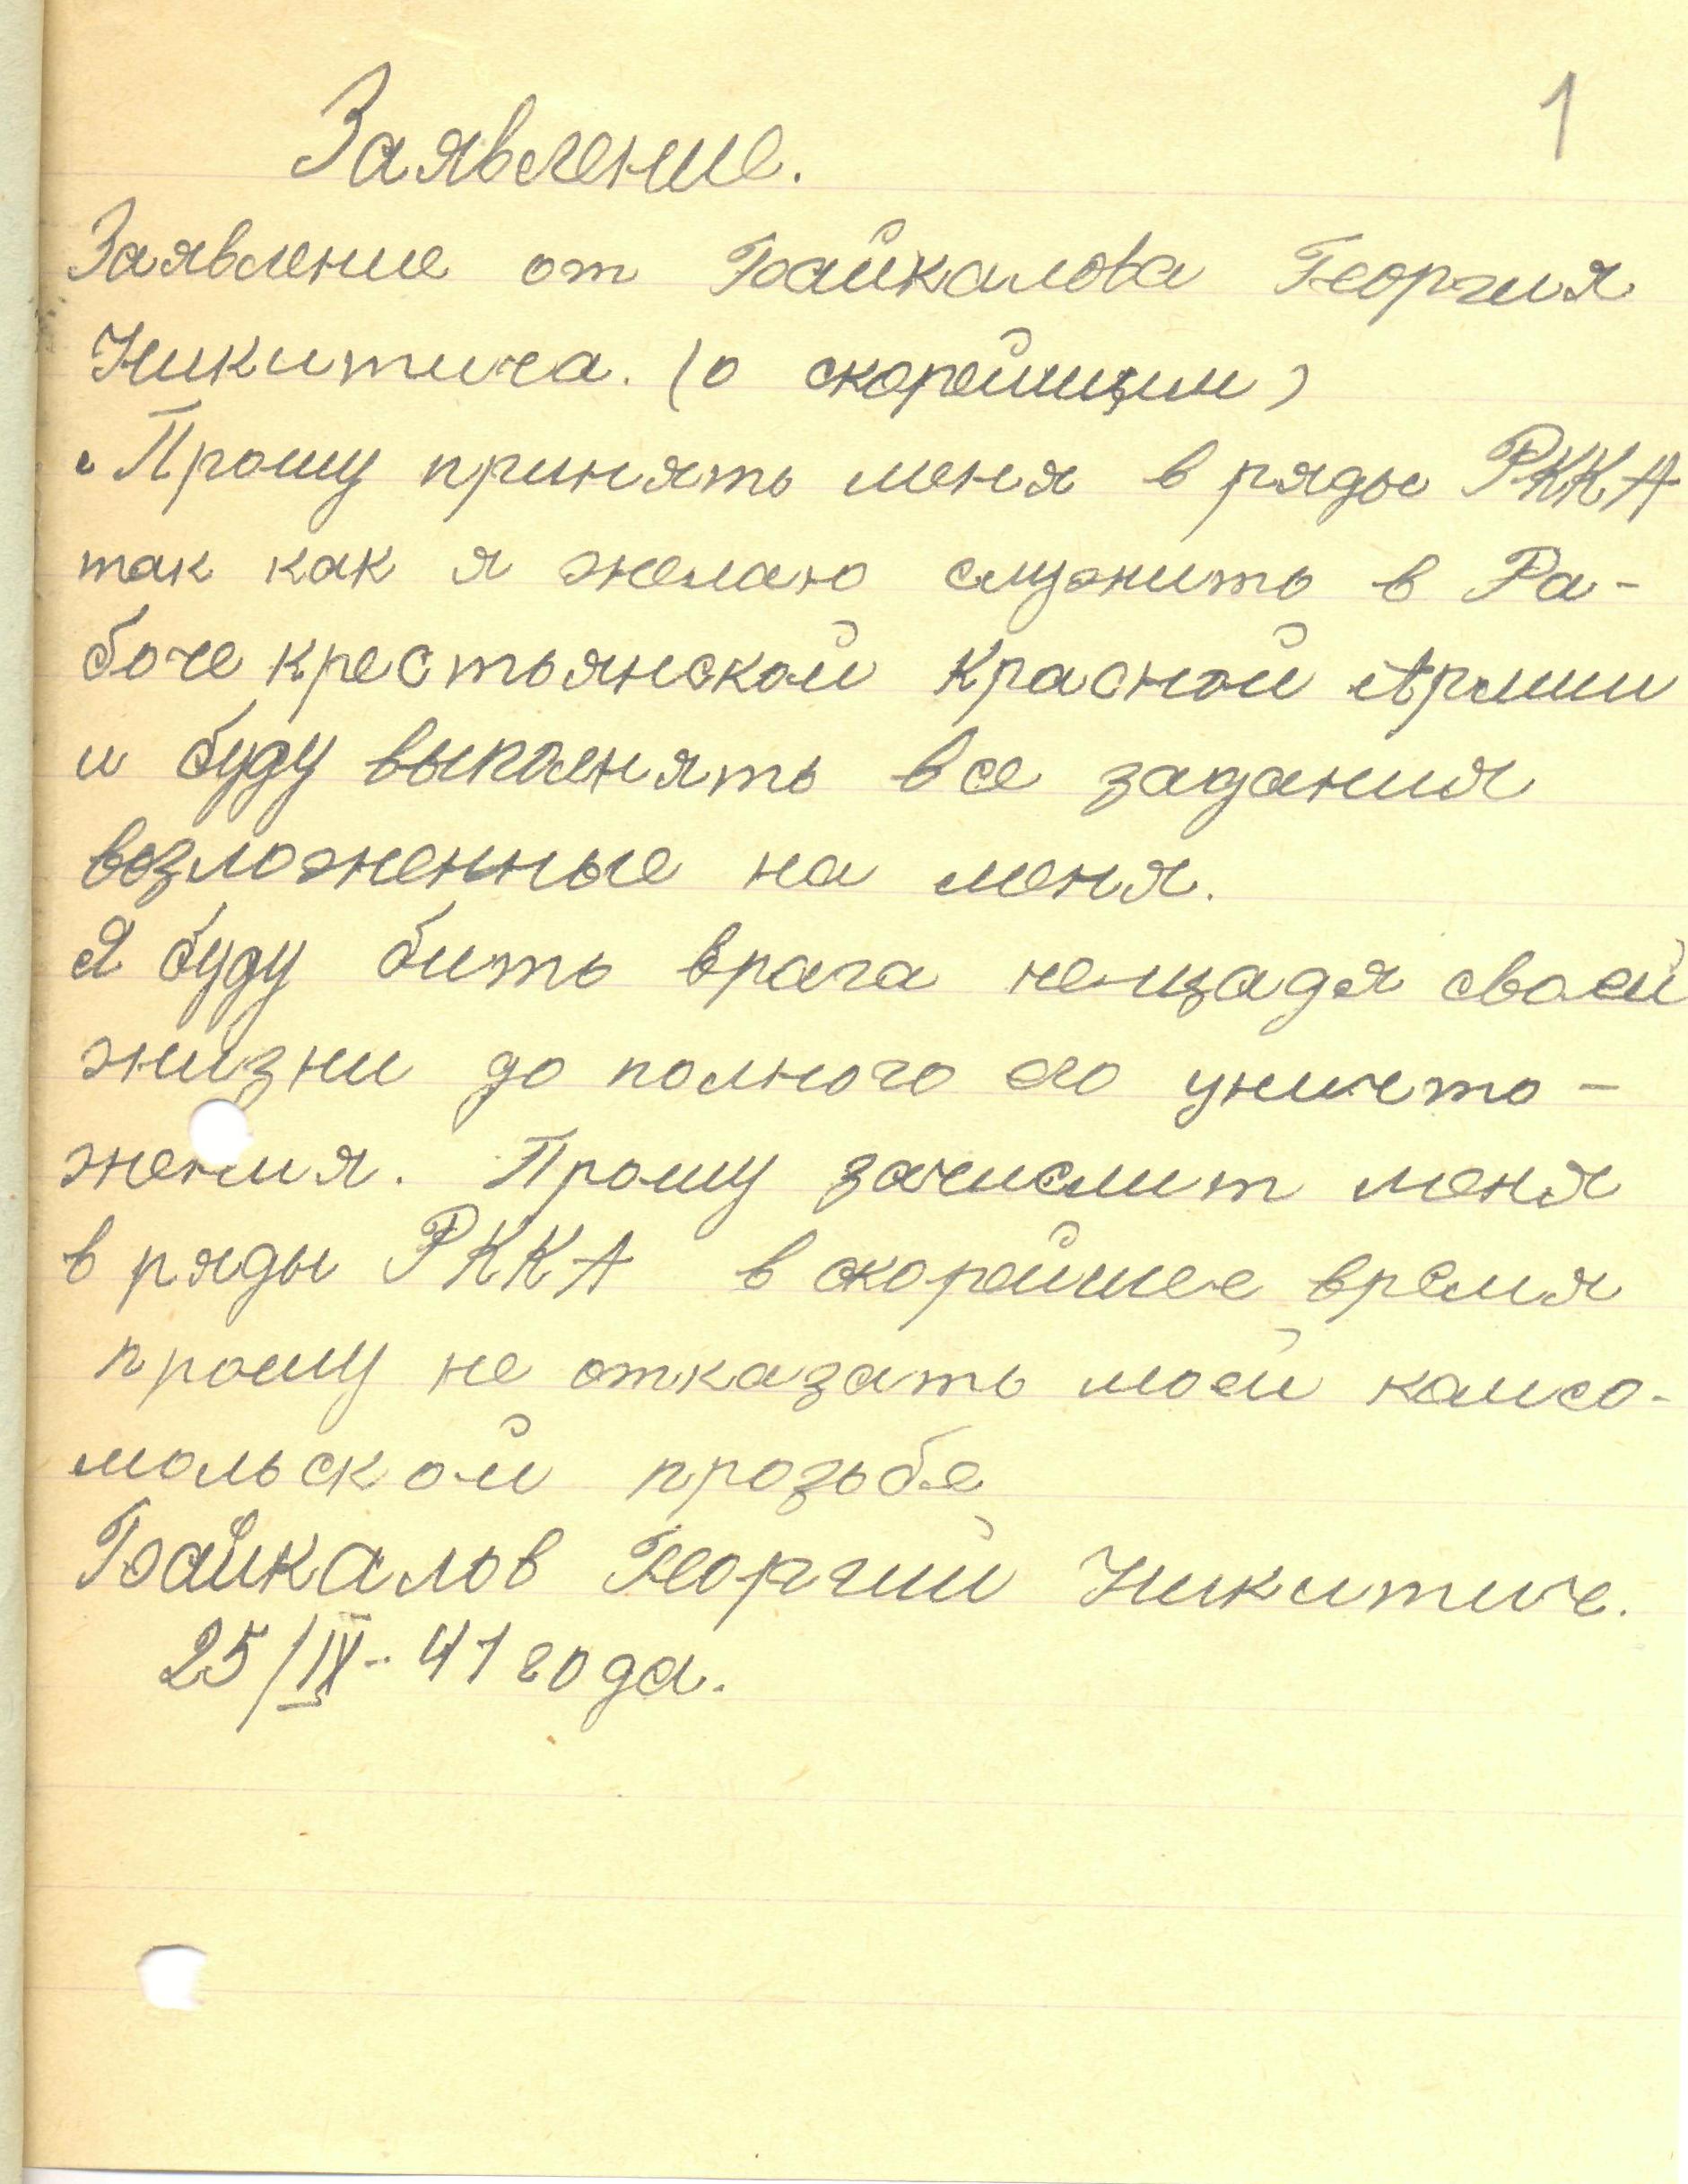 1
Заявление.
Заявление от Байкалова Георгия
Никитича. (о скорейшим)
Прошу принять меня в ряды РККА
так как я желаю служить в Ра-
боче крестьянской Красной Армии
и буду выполнять все задания
возложенные на меня.
Я буду бить врага нещадя своей
жизни до полного его уничто-
жения. Прошу зачислит меня
в ряды РККА в скорейшее время
прошу не отказать моей комсо-
мольской прозьбе
Байкалов Георгий Никитич.
25/IX-41 года.